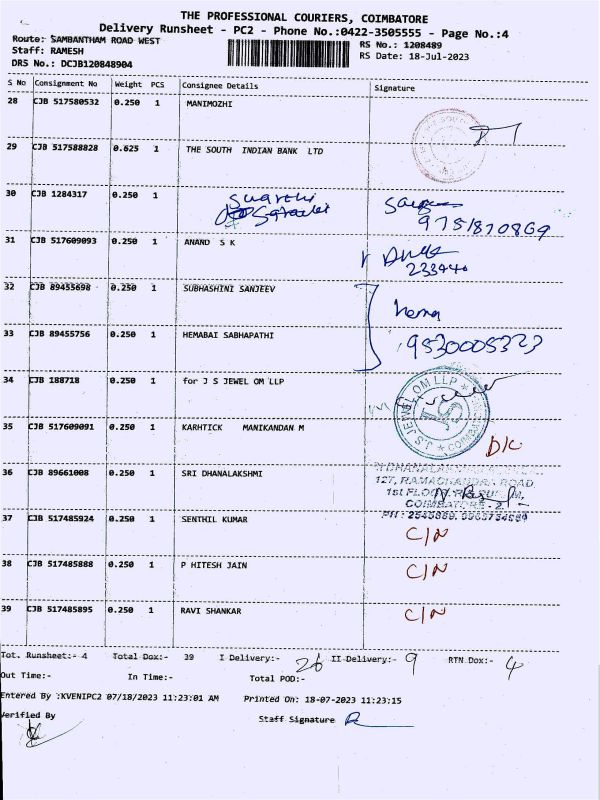 THE PROFESSIONAL COURIERS, COIMBATORE
Delivery Runsheet - PC2 - Phone No.:0422-3505555 - Page No.:4
Route: SAMBANTHAM ROAD WEST
Staff: RAMESH
DRS No.: DCJB120848904
RS No.: 1208489
RS Date: 18-Jul-2023
S No Consignment No Weight PCS Consignee Details Signature
28 CJB 517580532 0.250 1 MANIMOZHI
29 CJB 517588828 0.625 1 THE SOUTH INDIAN BANK LTD
30 CJB 1284317 0.250 1
9751870869
31 CJB 517609093 0.250 1 ANAND S K
233440
32 CJB 89455698 0.250 1 SUBHASHINI SANJEEV
hema
33 CJB 89455756 0.250 1 HEMABAI SABHAPATHI
9530005323
34 CJB 188718 0.250 1 for J S JEWEL OM LLP
J.S.JEWEL OM LLP * COIMBATORE *
JS
35 CJB 517609091 0.250 1 KARHTICK MANIKANDAN M
D/C
36 CJB 89661008 0.250 1 SRI DHANALAKSHMI
127, RAMACHANDRA ROAD,
1st FLOOR,
COIMBATORE - 2.
37 CJB 517485924 0.250 1 SENTHIL KUMAR
C/N
38 CJB 517485888 0.250 1 P HITESH JAIN
C/N
39 CJB 517485895 0.250 1 RAVI SHANKAR
C/N
Tot. Runsheet:- 4 Total Dox:- 39 I Delivery:- 26 II Delivery:- 9 RTN Dox:- 4
Out Time:- In Time:- Total POD:-
Entered By :KVENIPC2 07/18/2023 11:23:01 AM Printed On: 18-07-2023 11:23:15
Verified By Staff Signature